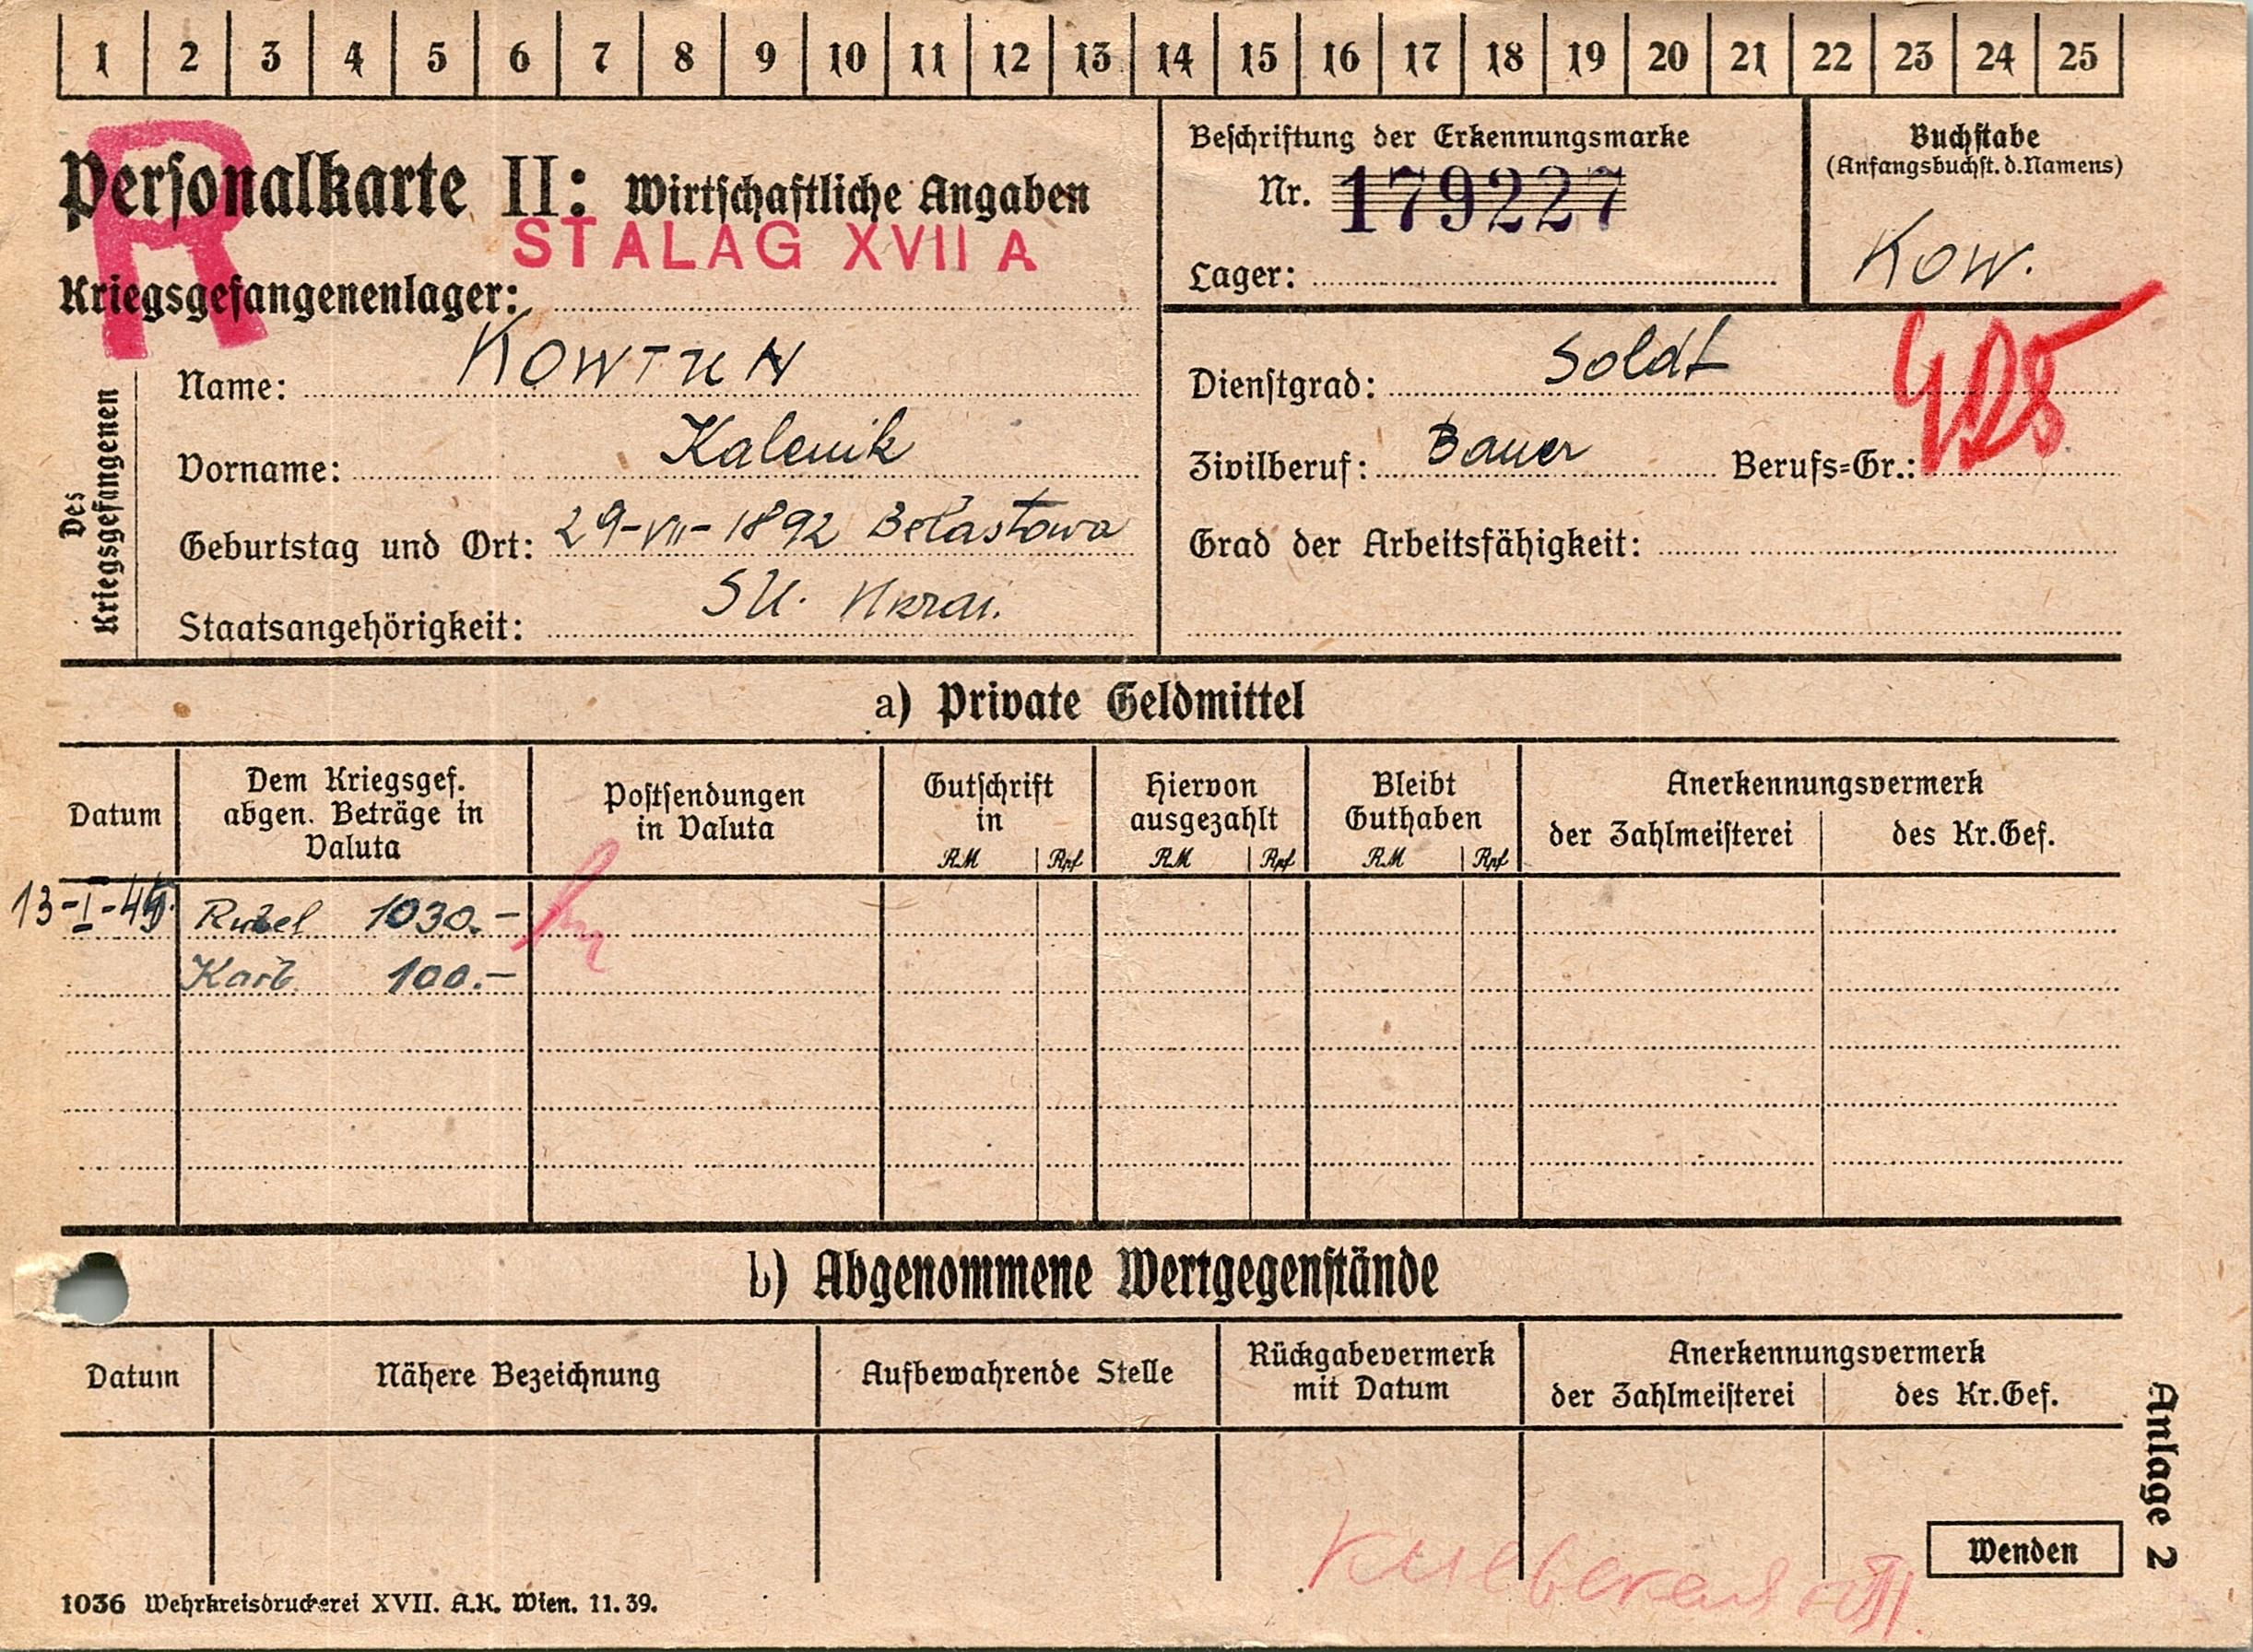 1 2 3 4 5 6 7 8 9 10 11 12 13 14 15 16 17 18 19 20 21 22 23 24 25
R
Personalkarte II: Wirtschaftliche Angaben
STALAG XVII A
Kriegsgefangenenlager:
Beschriftung der Erkennungsmarke
Nr. 179227
Lager:
Buchstabe
(Anfangsbuchst. d. Namens)
Kow.
Des Kriegsgefangenen
Name: KOWTUN
Vorname: Kalenik
Geburtstag und Ort: 29-VII-1892 Belastowa
Staatsangehörigkeit: SU. Ukrai.
Dienstgrad: Soldt
Zivilberuf: Bauer Berufs=Gr.:
Grad der Arbeitsfähigkeit:
a) Private Geldmittel
Datum
Dem Kriegsgef.
abgen. Beträge in
Valuta
Postsendungen
in Valuta
Gutschrift
in
RM Rpf
Hiervon
ausgezahlt
RM Rpf
Bleibt
Guthaben
RM Rpf
Anerkennungsvermerk
der Zahlmeisterei des Kr.Gef.
13-I-45. Rubel 1030.-
Karb. 100.-
b) Abgenommene Wertgegenstände
Datum
Nähere Bezeichnung
Aufbewahrende Stelle
Rückgabevermerk
mit Datum
Anerkennungsvermerk
der Zahlmeisterei des Kr.Gef.
Anlage 2
Wenden
1036 Wehrkreisdruckerei XVII. A.K. Wien. 11.39.